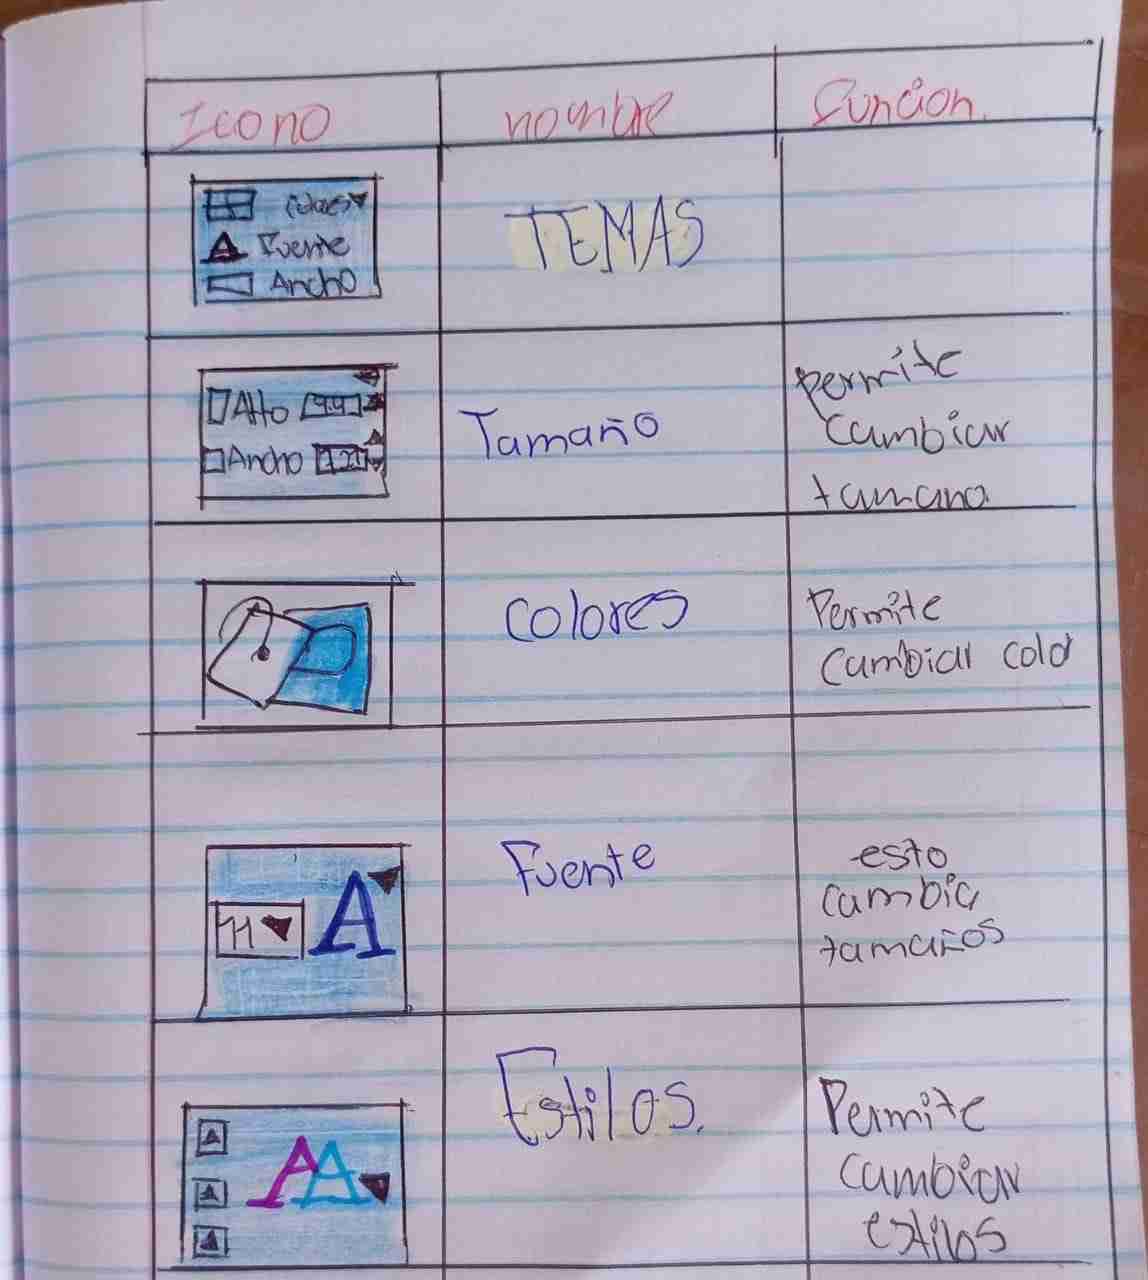 Icono nombre funcion.
Fuente
Ancho
TEMAS
Alto 9.9
Ancho
Tamaño
permite
Cambiar
tamano
Colores
Permite
Cambiar colo
11 A
Fuente
esto
cambia
tamaños
AA
Estilos.
Permite
Cambiar
estilos